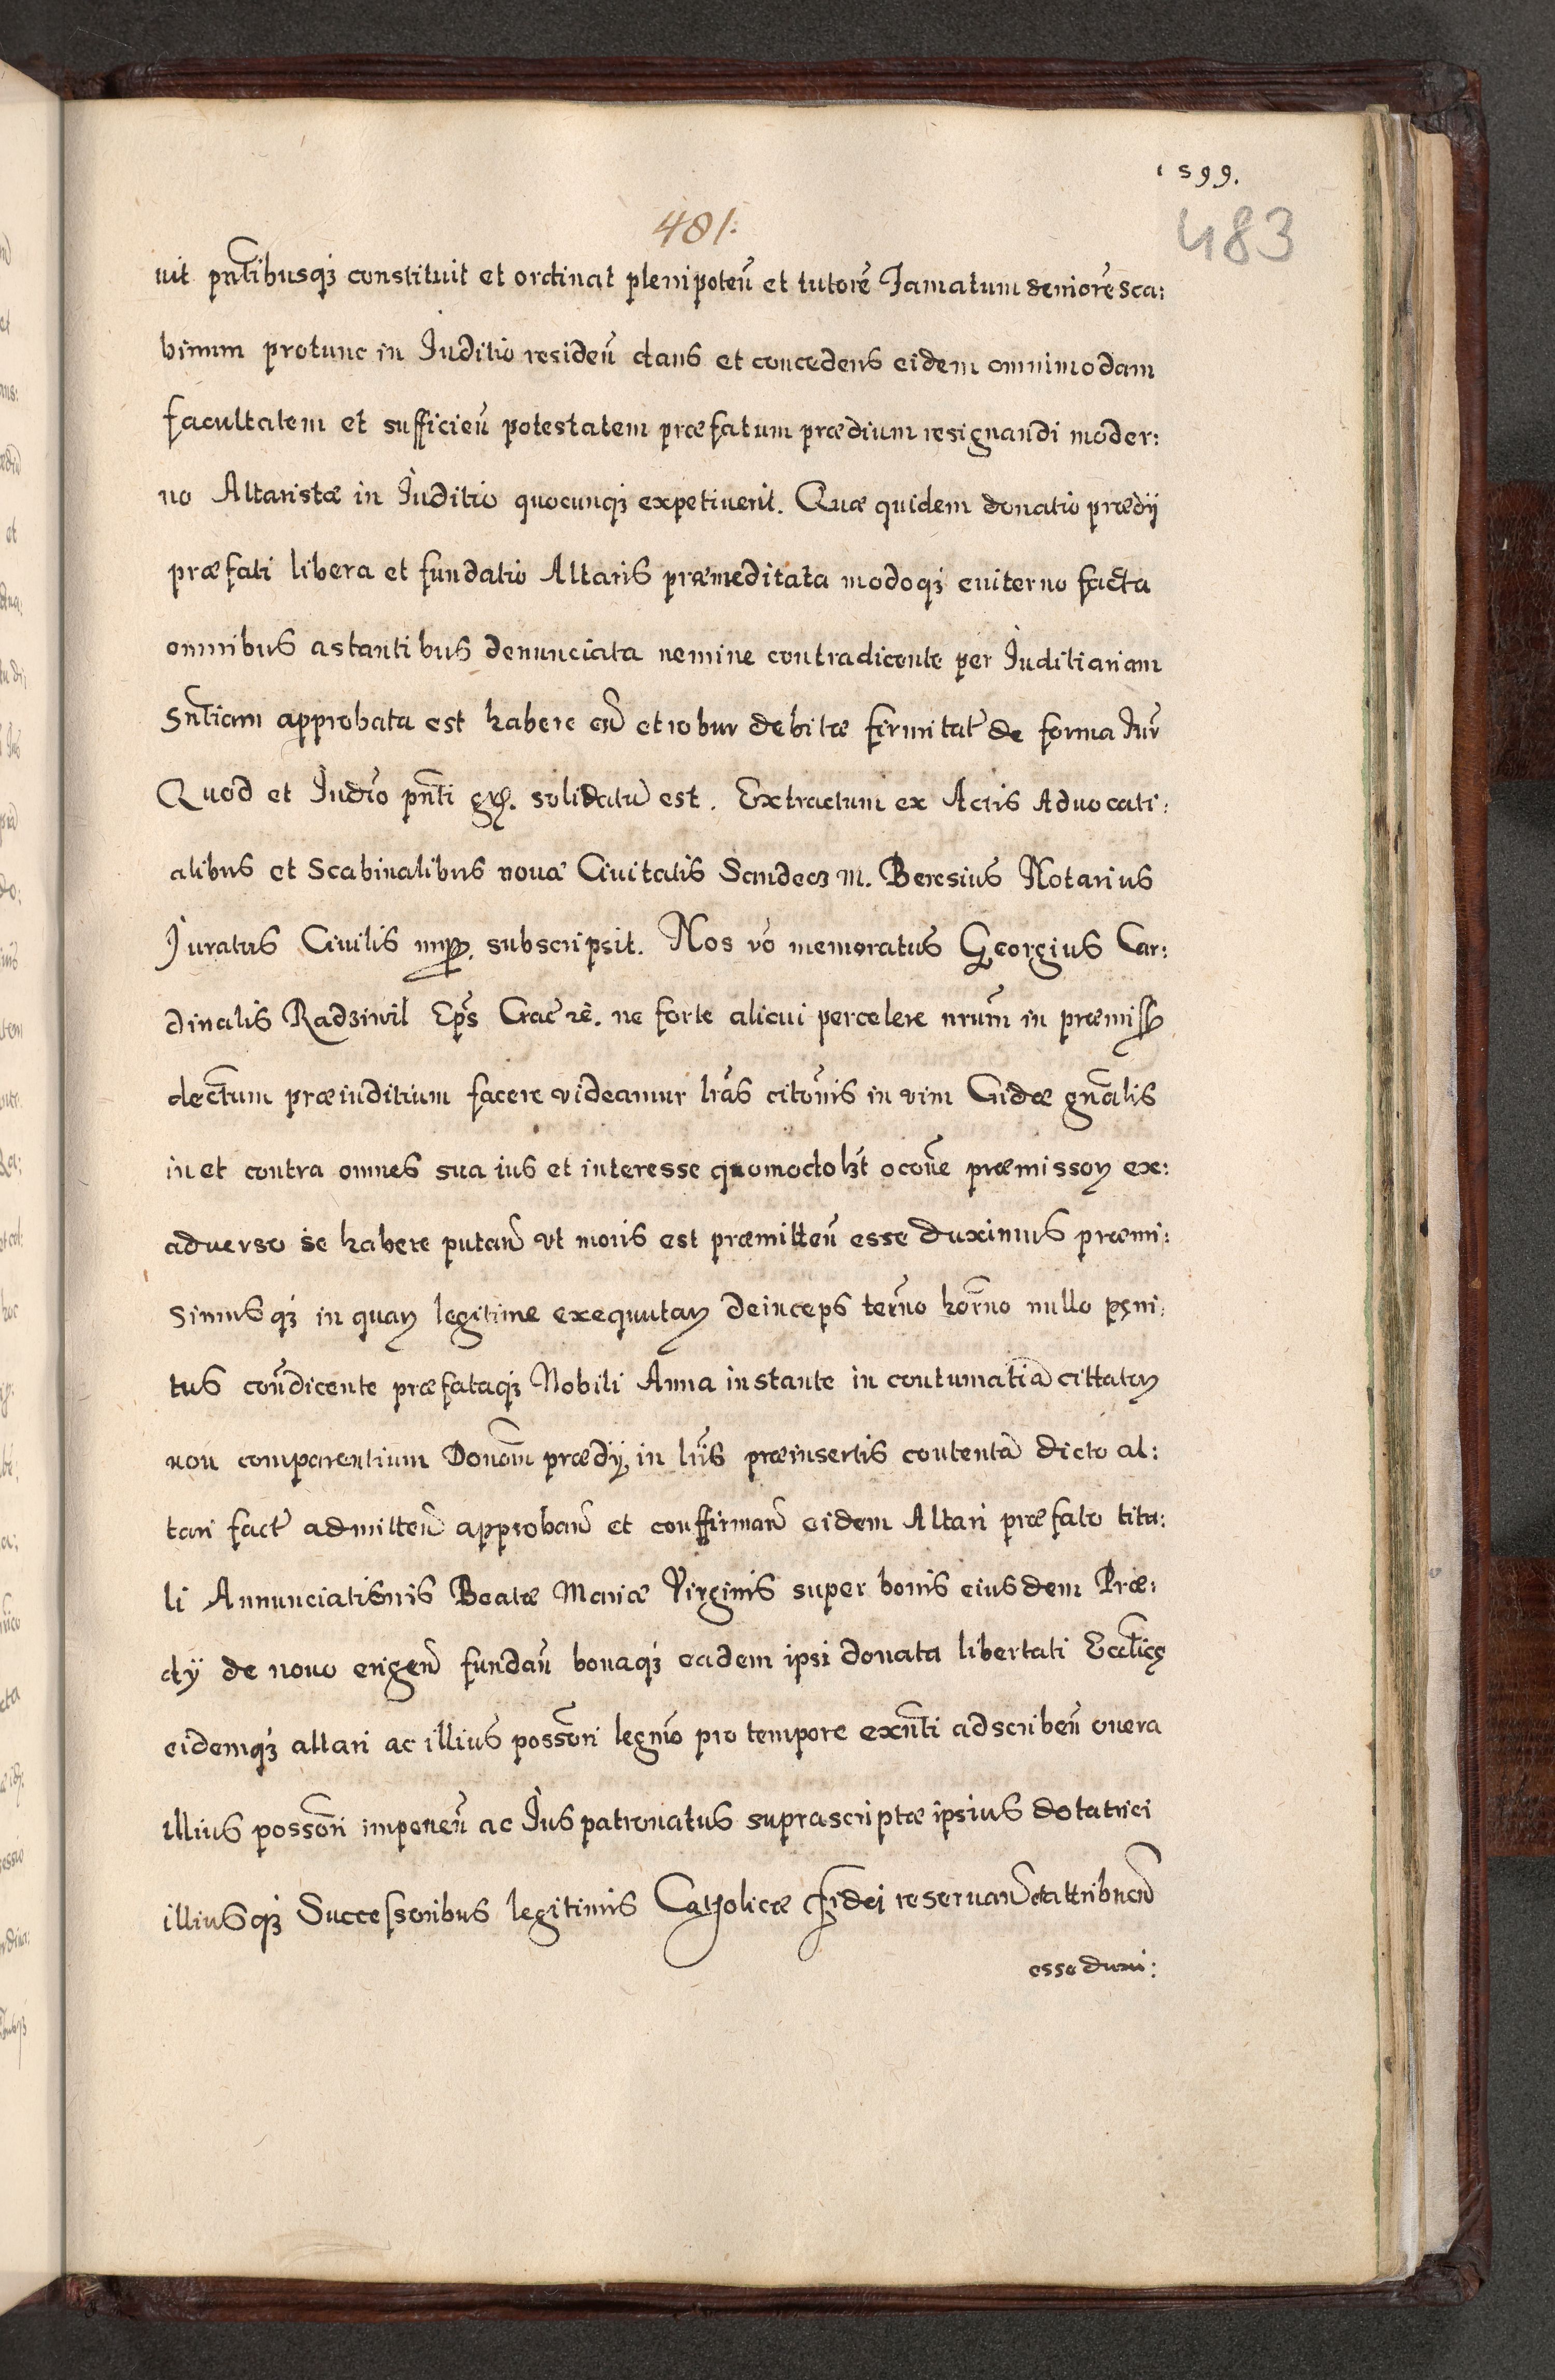 1599.
481:
483
uit pñtibusqȝ constituit et ordinat plenipoteñ et tutorẽ Famatum seniorẽ Sca:
binum protunc in Iuditio resideñ dans et concedens eidem omnimodam
facultatem et sufficieñ potestatem præfatum prædium resignandi moder:
no Altaristæ in Iuditio quocunqȝ expetiuerit. Quæ quidem donatio prædij
præfati libera et fundatio Altaris præmeditata modoqȝ euiterno facta
omnibus astantibus denunciata nemine contradicente per Iuditiariam
Sñtiam approbata est habere et robur debitæ firmitat̃ de forma Iur̃
Quod et Iudĩo pñti solidatũ est. Extractum ex Actis Aduocati:
alibus et Scabinalibus nouæ Ciuitatis Sandecȝ M. Beresius Notarius
Iuratus Ciuilis mpp. subscripsit. Nos võ memoratus Georgius Car:
dinalis Radziwil Ep̃s Crac̃ ne forte alicui percelere nrũm in præmiss
dectum præiuditium facere videamur lrãs citõnis in vim Cridæ gñalis
in et contra omnes sua ius et interesse quomodolȝt ocõne præmissoꝝ ex:
aduerso se habere putañ vt moris est præmitteñ esse duximus præmi:
simusqȝ in quaꝝ legitime exequutaꝝ deinceps term̃o hor̃no nullo pęni:
tus coñdicente præfataqȝ Nobili Anna instante in contumatiã cittatoꝝ
non comparentium Donõm prædij, in lr̃is præinsertis contentã dicto al:
tari fact̃ admitteñ approbañ et confirmañ eidem Altari præfato titu:
li Annunciationis Beatæ Mariæ Virginis super bonis eiusdem Præ:
dij de nouo erigeñ fundañ bonaqȝ eadem ipsi donata libertati Eccl̃ticę
eidemqȝ altari ac illius possõri legmõ pro tempore exñti adscribeñ onera
illius possõri imponeñ ac Ius patronatus suprascriptæ ipsius dotatrici
illiusqȝ Successoribus legitimis Catholicæ Fidei reseruañ et attribueñ
esse duxi: